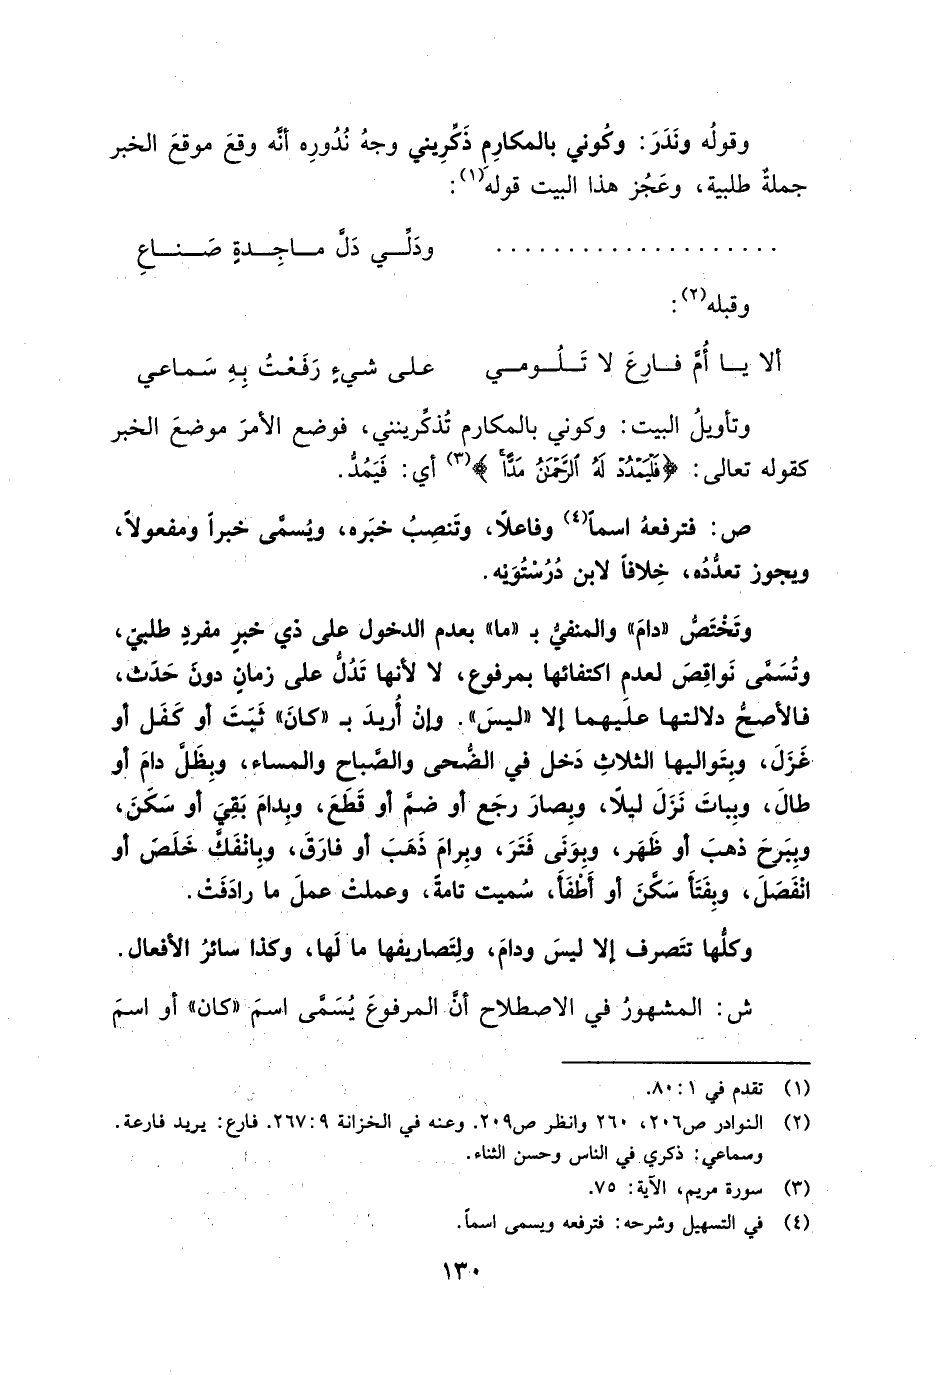 وقولُه ونَدَرَ: وكُوني بالمكارِمِ ذَكِّريني وجهُ نُدُورِه أنَّه وقعَ موقعَ الخبر
جملةٌ طلبية، وعَجُز هذا البيت قوله(١):
.................... ودَلِّــي دَلَّ مــاجِــدةٍ صَــنــاعِ
وقبله(٢):
ألا يــا أُمَّ فــارعَ لا تَــلُــومــي علــى شــيءٍ رَفَعْــتُ بِهِ سَمـاعي
وتأويلُ البيت: وكوني بالمكارم تُذكِّرينني، فوضع الأمرَ موضعَ الخبر
كقوله تعالى: ﴿فَلْيَمْدُدْ لَهُ ٱلرَّحْمَٰنُ مَدًّا﴾(٣) أي: فَيَمُدُّ.
ص: فترفعهُ اسماً(٤) وفاعلًا، وتَنصِبُ خبَره، ويُسمَّى خبراً ومفعولًا،
ويجوز تعدُّدُه، خِلافاً لابن دُرُسْتُوَيْه.
وتَخْتَصُّ «دامَ» والمنفيُّ بـ «ما» بعدم الدخول على ذي خبرٍ مفردٍ طلبيّ،
وتُسَمَّى نَواقِصَ لعدمِ اكتفائها بمرفوع، لا لأنها تَدُلُّ على زمانٍ دونَ حَدَث،
فالأصحُّ دلالتها عليهما إلا «ليسَ». وإنْ أُريدَ بـ «كانَ» ثَبَتَ أو كَفَل أو
غَزَلَ، وبِتَواليها الثلاثِ دَخل في الضُّحى والصَّباح والمساء، وبِظَلَّ دامَ أو
طالَ، وبِباتَ نَزَلَ ليلًا، وبِصارَ رجَع أو ضمَّ أو قَطَعَ، وبِدامَ بَقِيَ أو سَكَنَ،
وبِبَرِحَ ذهبَ أو ظَهَر، وبِوَنَى فَتَرَ، وبِرامَ ذَهَبَ أو فارَقَ، وبِانْفَكَّ خَلَصَ أو
انْفَصَلَ، وبِفَتَأَ سَكَّنَ أو أَطْفَأَ، سُميت تامةً، وعملتْ عملَ ما رادَفَتْ.
وكلُّها تتَصرف إلا ليسَ ودامَ، ولِتَصاريفها ما لَها، وكذا سائرُ الأفعال.
ش: المشهورُ في الاصطلاح أنَّ المرفوعَ يُسَمَّى اسمَ «كان» أو اسمَ
(١) تقدم في ١: ٨٠.
(٢) النوادر ص٢٠٦، ٢٦٠ وانظر ص٢٠٩. وعنه في الخزانة ٩: ٢٦٧. فارع: يريد فارعة.
وسماعي: ذكري في الناس وحسن الثناء.
(٣) سورة مريم، الآية: ٧٥.
(٤) في التسهيل وشرحه: فترفعه ويسمى اسماً.
١٣٠